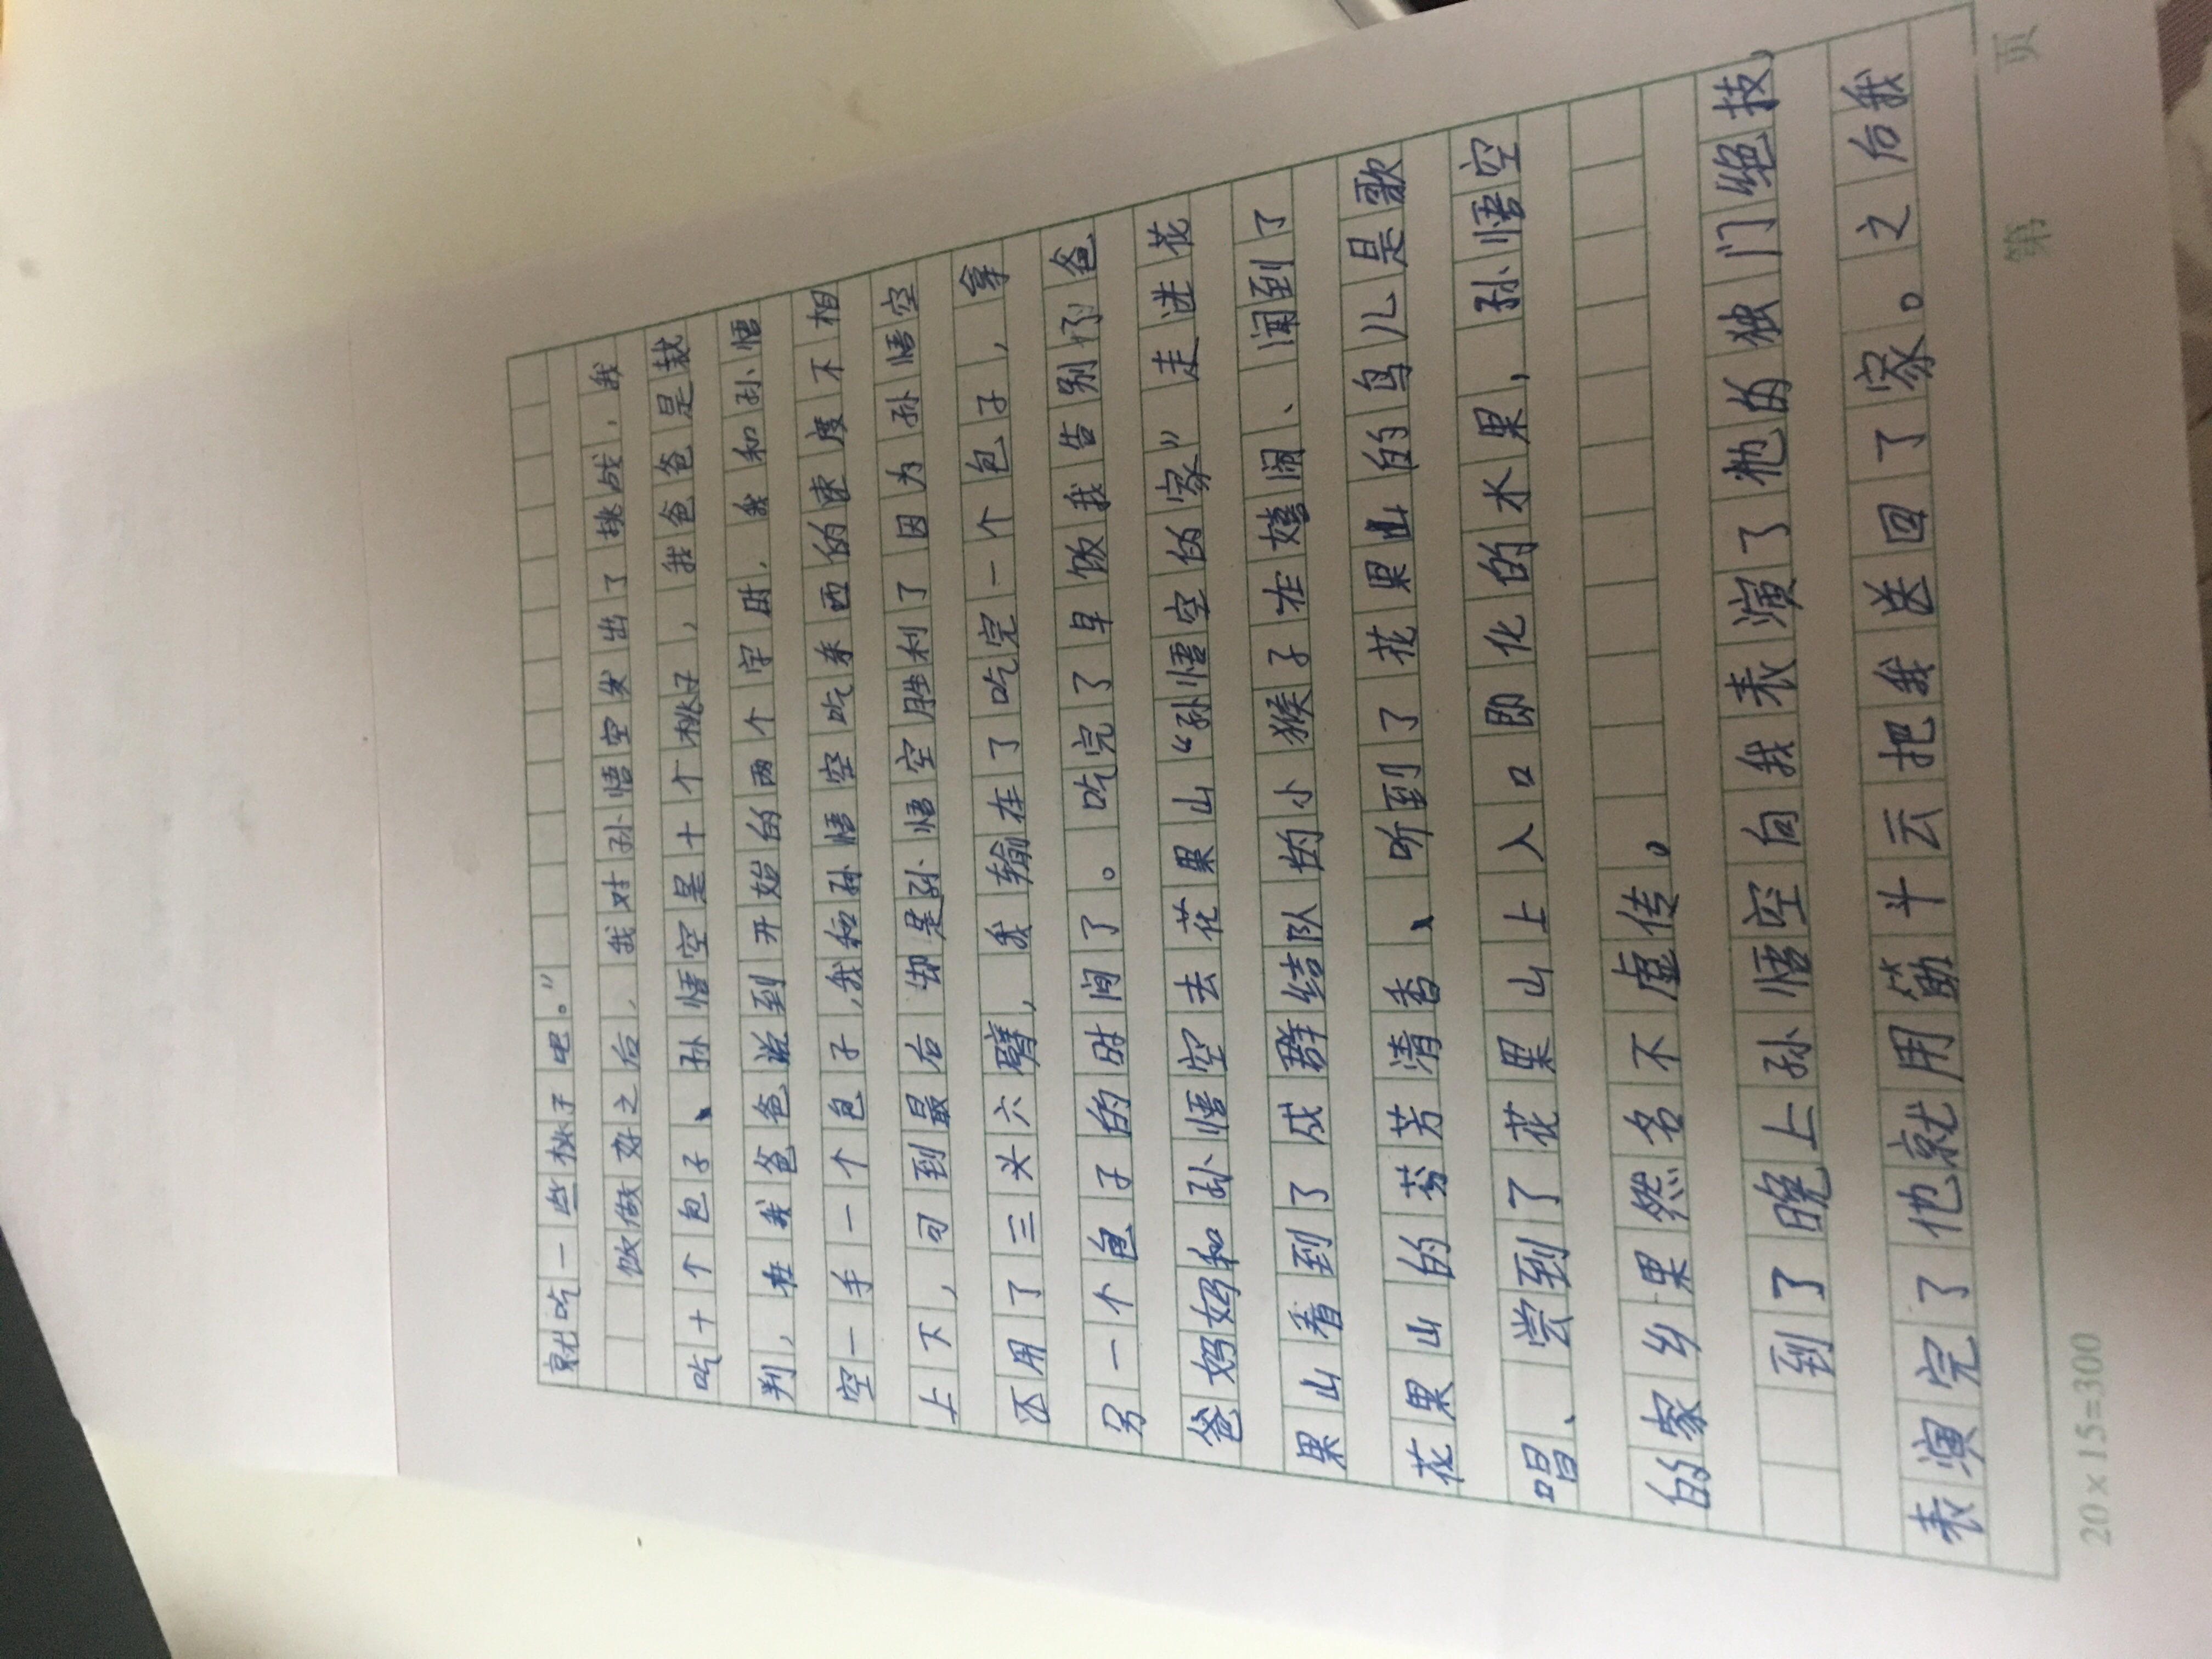 就吃一些桃子吧。”
饭做好之后，我对孙悟空发出了挑战，我
吃十个包子、孙悟空是十个桃子，我爸爸是裁
判，在我爸爸说到开始的两个字时，我和孙悟
空一手一个包子，我和孙悟空吃东西的速度不相
上下，可到最后却是孙悟空胜利了因为孙悟空
还用了三头六臂，我输在了吃完一个包子，拿
另一个包子的时间了。吃完了早饭我告别了爸
爸妈妈和孙悟空去花果山“孙悟空的家”走进花
果山看到了成群结队的小猴子在嬉闹、闻到了
花果山的芬芳清香、听到了花果山的鸟儿是歌
唱、尝到了花果山上入口即化的水果，孙悟空
的家乡果然名不虚传。
到了晚上孙悟空向我表演了他的独门绝技，
表演完了他就用筋斗云把我送回了家。之后我
20×15=300
第 页